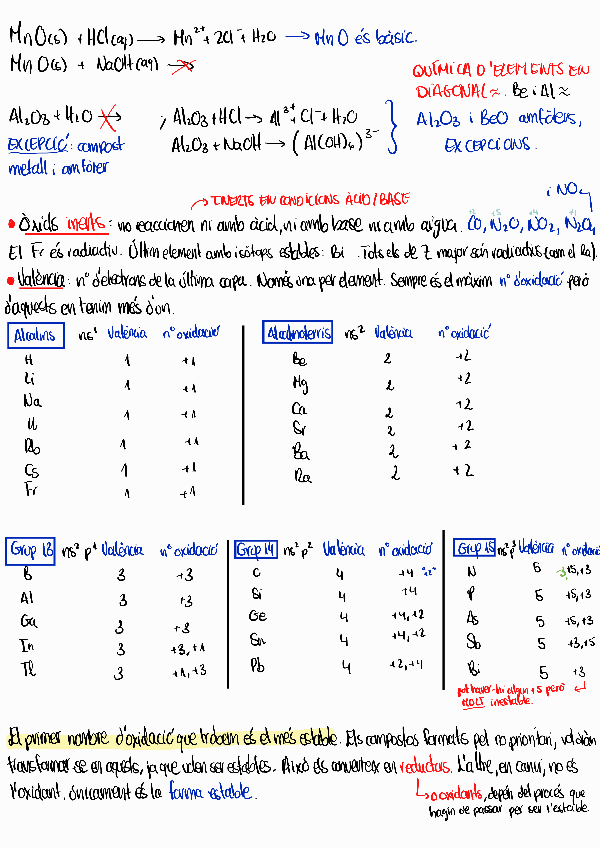 MnO(s) + HCl(aq) → Mn²⁺ + 2Cl⁻ + H₂O → MnO és bàsic.
MnO(s) + NaOH(aq) →
QUÍMICA D'ELEMENTS EN
DIAGONAL ≈. Be i Al ≈
Al₂O₃ + H₂O → ; Al₂O₃ + HCl → Al³⁺ + Cl⁻ + H₂O
Al₂O₃ i BeO amfòters,
EXCEPCIÓ: compost Al₂O₃ + NaOH → (Al(OH)₆)³⁻
EXCEPCIONS.
metall i amfòter
→ INERTS EN CONDICIONS ÀCID/BASE
i NO
• Òxids inerts: no reaccionen ni amb àcid, ni amb base ni amb aigua. CO, N₂O, NO₂, N₂O₄
El Fr és radiactiu. Últim element amb isòtops estables: Bi. Tots els de Z major són radiactius (com el Ra).
• València: nº d'electrons de la última capa. Només una per element. Sempre és el màxim nº d'oxidació però
d'aquests en tenim més d'un.
Alcalins ns¹ València nº oxidació
H 1 +1
Li 1 +1
Na
1 +1
Rb 1 +1
Cs 1 +1
Fr 1 +1
Alcalinoterris ns² València nº oxidació
Be 2 +2
Mg 2 +2
Ca 2 +2
Sr 2 +2
Ba 2 +2
Ra 2 +2
Grup 13 ns² p¹ València nº oxidació
B 3 +3
Al 3 +3
Ga 3 +3
In 3 +3, +1
Tl 3 +1, +3
Grup 14 ns² p² València nº oxidació
C 4 +4 "+2"
Si 4 +4
Ge 4 +4, +2
Sn 4 +4, +2
Pb 4 +2, +4
Grup 15 ns² p³ València nº oxidació
N 5 -3, +5, +3
P 5 +5, +3
As 5 +5, +3
Sb 5 +3, +5
Bi 5 +3
pot haver-hi algun +5 però
MOLT inestable.
El primer nombre d'oxidació que trobem és el més estable. Els compostos formats pel no prioritari, voldran
transformar-se en aquests, ja que volen ser estables. Això els converteix en reductors. L'altre, en canvi, no és
l'oxidant, únicament és la forma estable.
→ o oxidants, depèn del procés que
hagin de passar per ser l'estable.